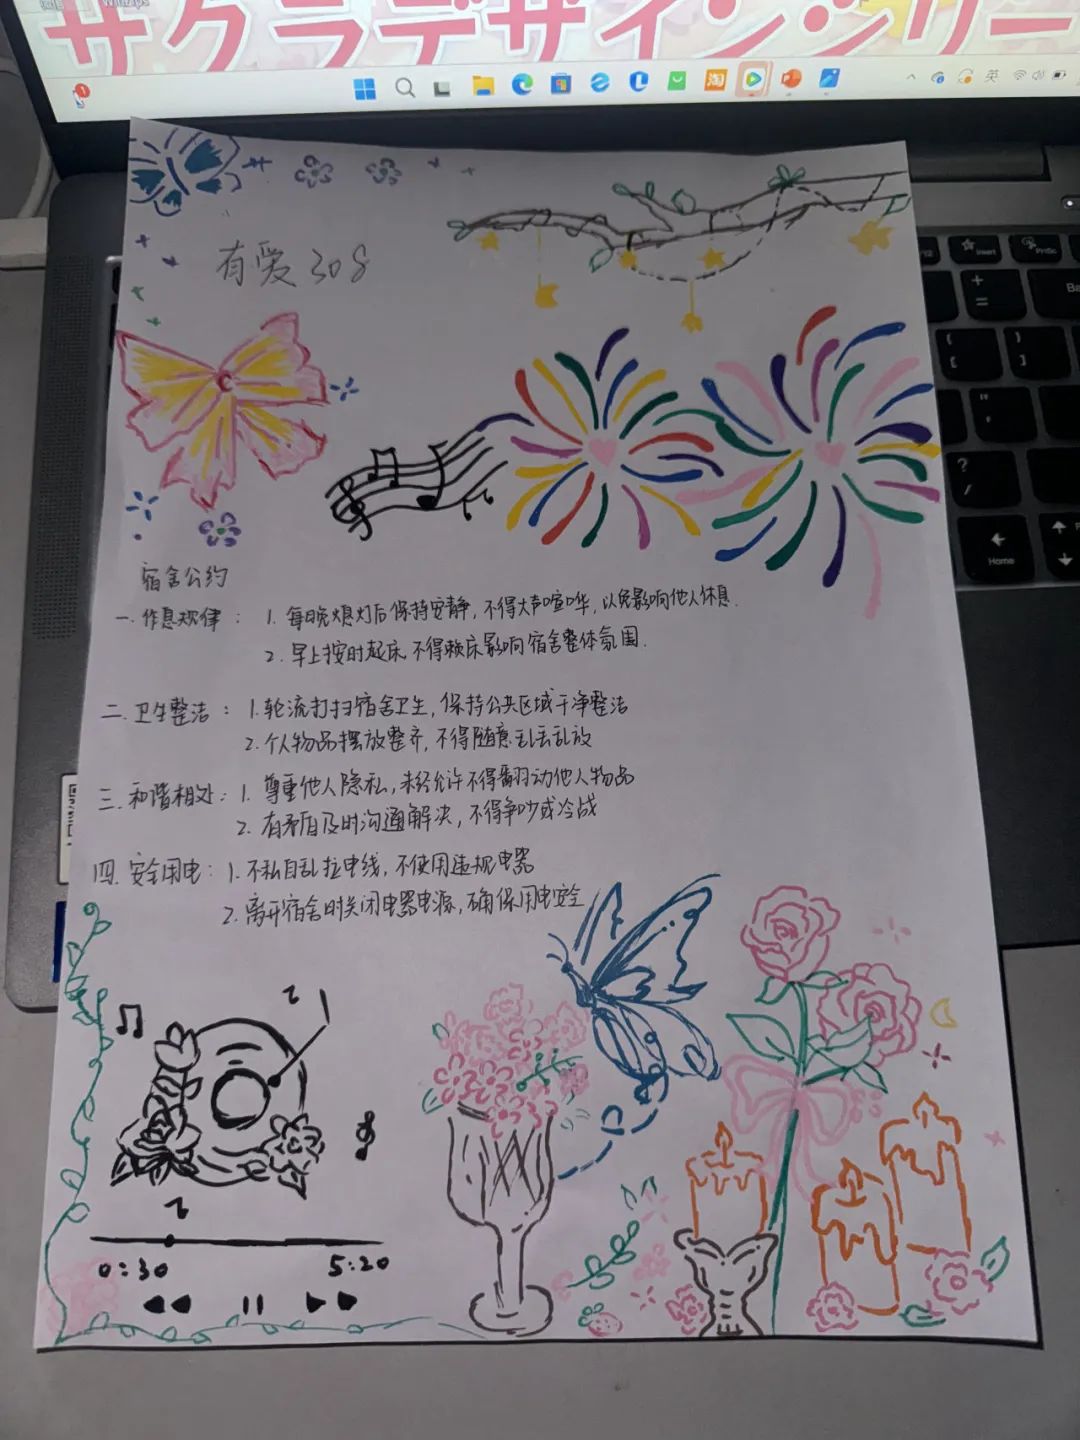 サクラデザインシリー
英
有爱308
宿舍公约
一. 作息规律： 1. 每晚熄灯后保持安静，不得大声喧哗，以免影响他人休息.
2. 早上按时起床，不得赖床影响宿舍整体氛围.
二. 卫生整洁： 1. 轮流打扫宿舍卫生，保持公共区域干净整洁
2. 个人物品摆放整齐，不得随意乱丢乱放
三. 和谐相处： 1. 尊重他人隐私，未经允许不得翻动他人物品
2. 有矛盾及时沟通解决，不得争吵或冷战
四. 安全用电： 1. 不私自乱拉电线，不使用违规电器
2. 离开宿舍时关闭电器电源，确保用电安全
0:30 5:20
Insert
PrtSc
Home